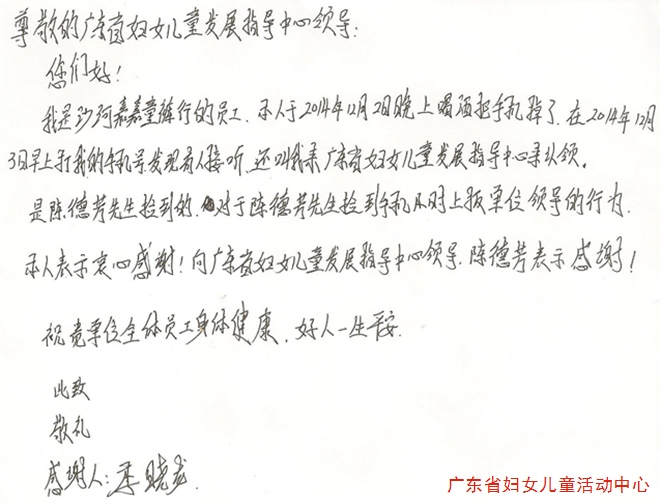 尊敬的广东省妇女儿童发展指导中心领导:
您们好!
我是沙河嘉嘉童裤行的员工、本人于2014年12月2日晚上喝酒把手机掉了.在2014年12月
3日早上打我的手机号发现有人接听.还叫我来广东省妇女儿童发展指导中心来认领。
是陈德芳先生捡到的.对于陈德芳先生捡到手机及时上报单位领导的行为.
本人表示衷心感谢!向广东省妇女儿童发展指导中心领导.陈德芳表示感谢!
祝贵单位全体员工身体健康、好人一生平安.
此致
敬礼
感谢人:李晓龙.
广东省妇女儿童活动中心